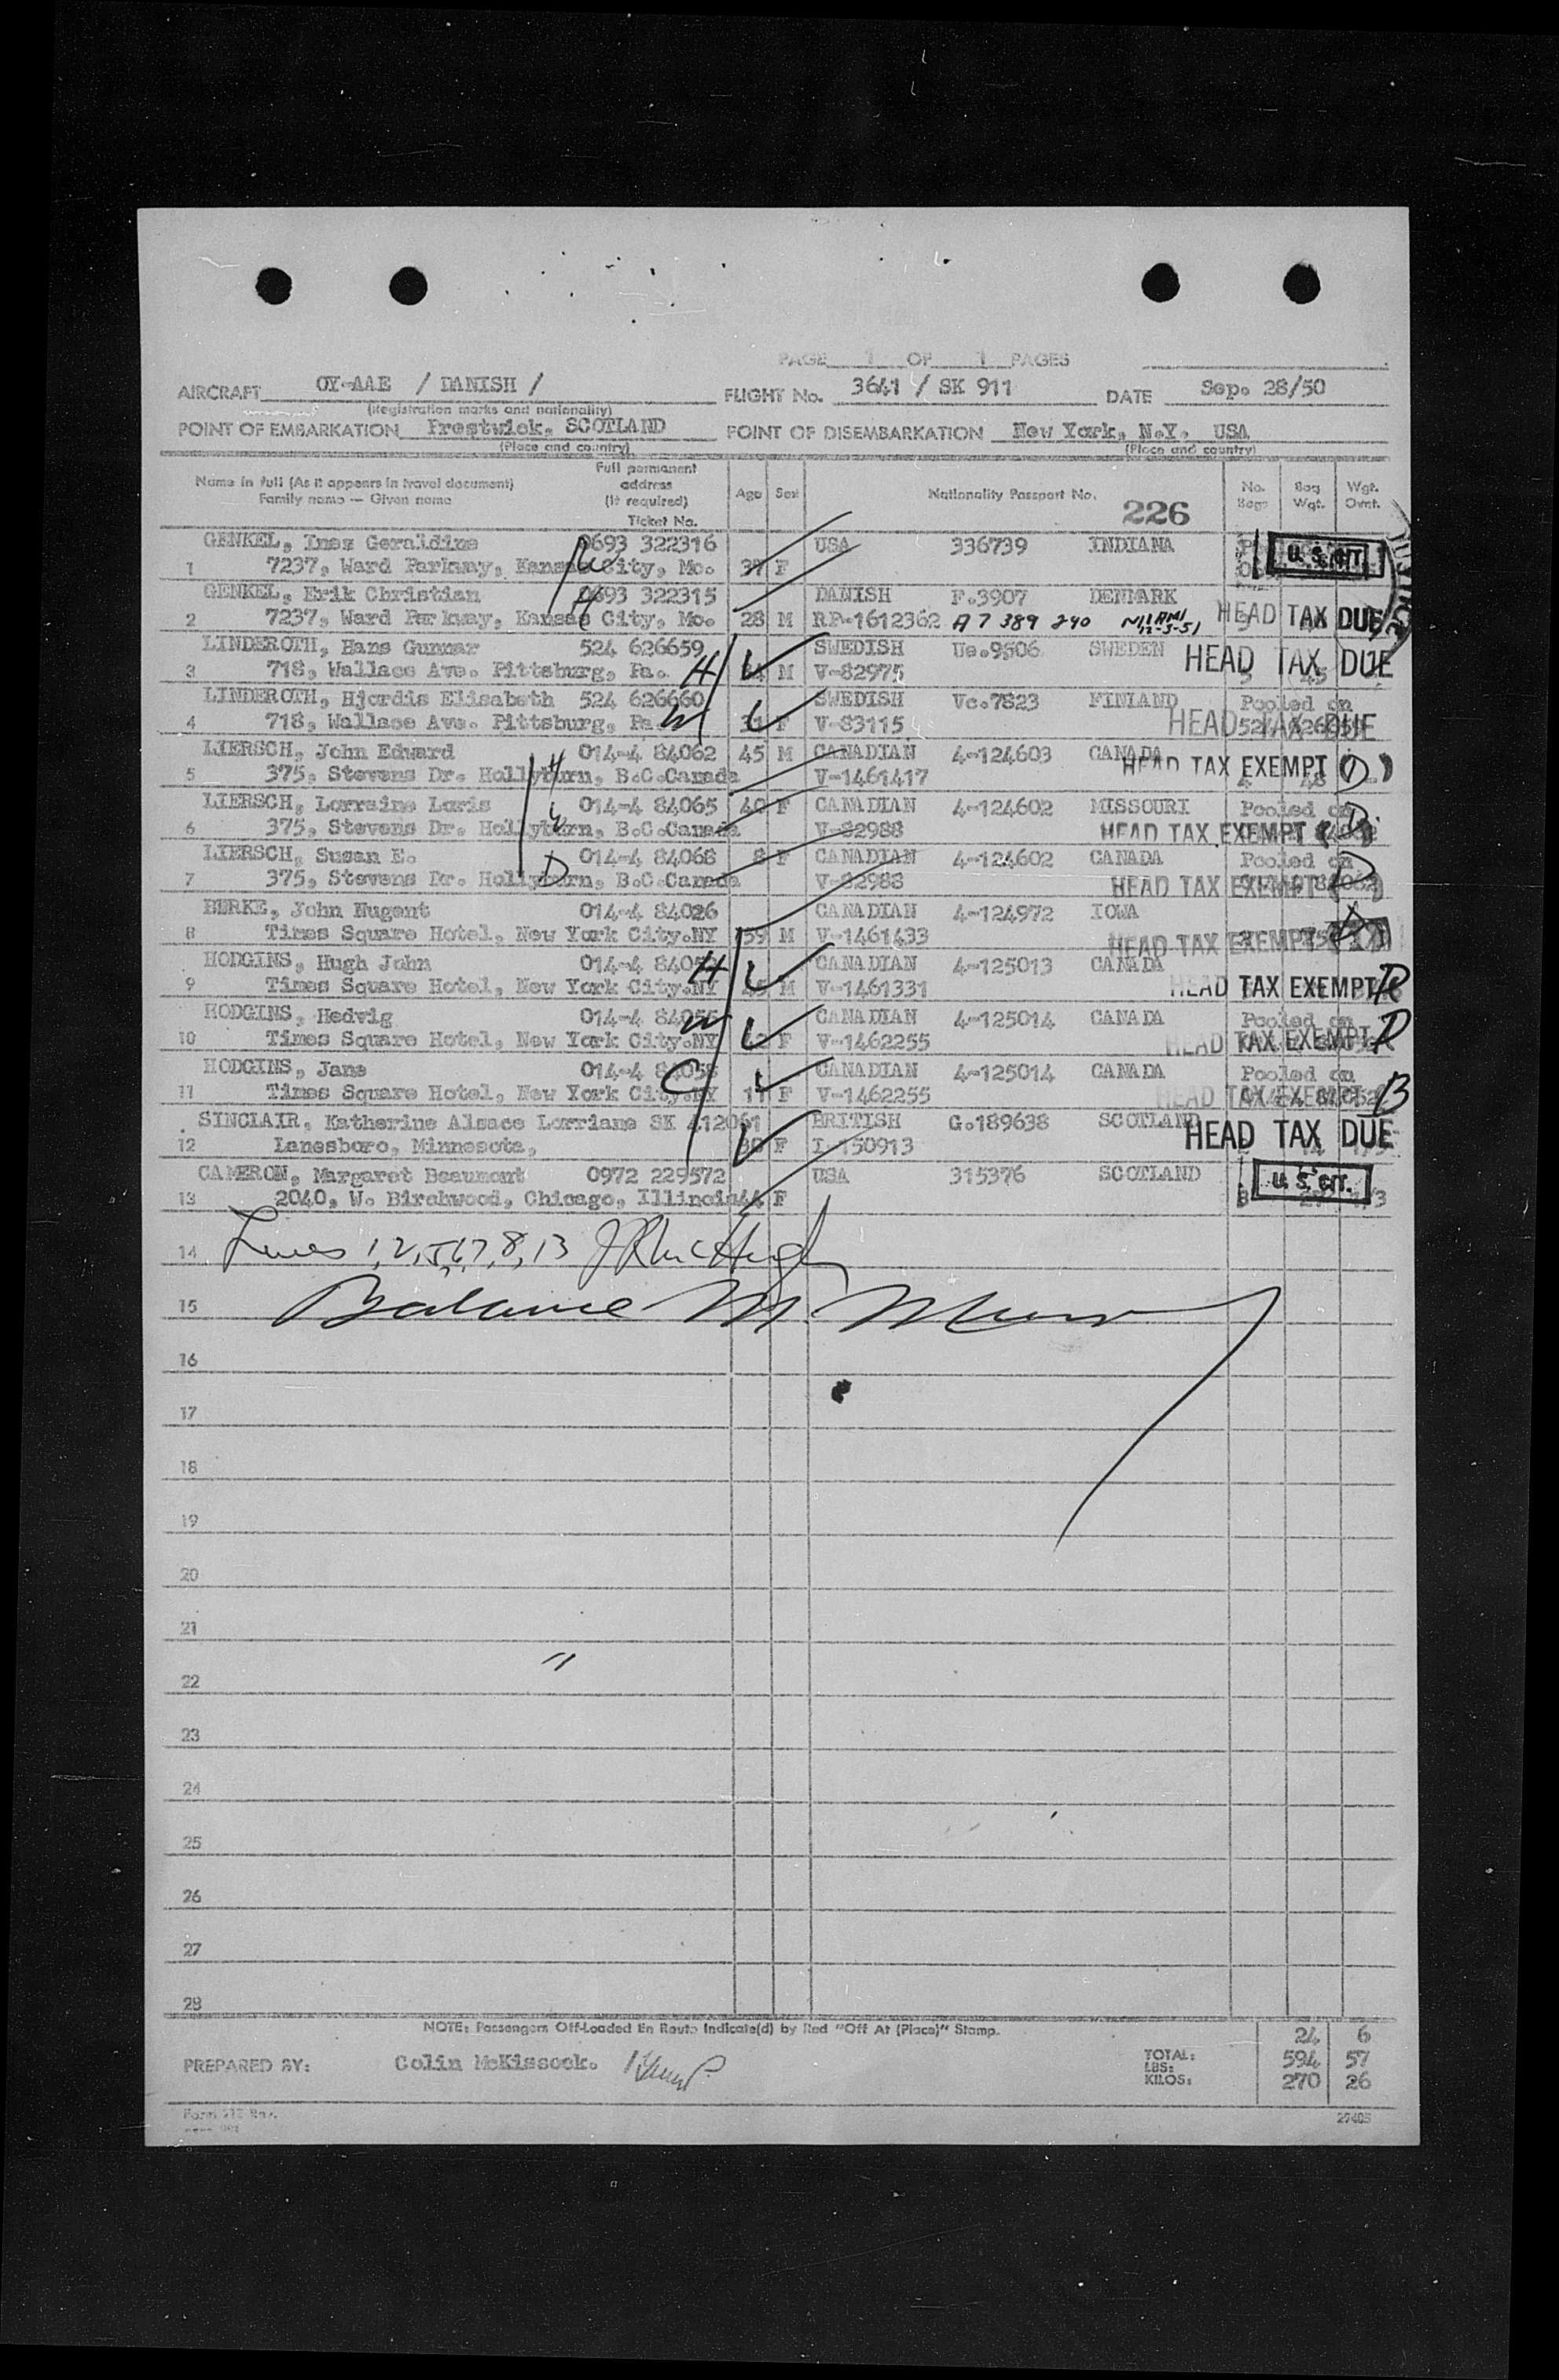 PAGE 1 OF 1 PAGES
AIRCRAFT OY-AAE / DANISH / FLIGHT No. 3641 / SK 911 DATE Sep. 28/50
(Registration marks and nationality)
POINT OF EMBARKATION Prestwick, SCOTLAND POINT OF DISEMBARKATION New York, N.Y. USA
(Place and country) (Place and country)
Name in full (As it appears in travel document) Family name — Given name Full permanent address (if required) Ticket No. Age Sex Nationality Passport No. No. Bags Bag Wgt. Wgt. Ovrt.
226
GENKEL, Inez Geraldine 0693 322316 USA 336739 INDIANA U. S. CIT.
1 7237, Ward Parkway, Kansas City, Mo. 37 F
GENKEL, Erik Christian 0693 322315 DANISH F.3907 DENMARK
2 7237, Ward Parkway, Kansas City, Mo. 28 M RP-1612362 A7 389 240 MIAMI 12-3-51 HEAD TAX DUE
LINDEROTH, Hans Gunnar 524 626659 SWEDISH Ue.9506 SWEDEN HEAD TAX DUE
3 718, Wallace Ave. Pittsburg, Pa. H M V-82975
LINDEROTH, Hjordis Elisabeth 524 626660 SWEDISH Vc.7823 FINLAND Pooled on
4 718, Wallace Ave. Pittsburg, Pa. W 31 F V-83115 HEAD TAX DUE
LIERSCH, John Edward 014-4 84062 45 M CANADIAN 4-124603 CANADA
5 375, Stevens Dr. Hollyburn, B.C.Canada H V-1461417 HEAD TAX EXEMPT
LIERSCH, Lorraine Loris 014-4 84065 40 F CANADIAN 4-124602 MISSOURI Pooled on
6 375, Stevens Dr. Hollyburn, B.C.Canada W V-82988 HEAD TAX EXEMPT D
LIERSCH, Susan E. 014-4 84068 8 F CANADIAN 4-124602 CANADA Pooled on
7 375, Stevens Dr. Hollyburn, B.C.Canada D V-82988 HEAD TAX EXEMPT D
BURKE, John Nugent 014-4 84026 CANADIAN 4-124972 IOWA
8 Times Square Hotel, New York City.NY 59 M V-1461433 HEAD TAX EXEMPT
HODGINS, Hugh John 014-4 CANADIAN 4-125013 CANADA
9 Times Square Hotel, New York City.NY H M V-1461331 HEAD TAX EXEMPT
HODGINS, Hedvig 014-4 CANADIAN 4-125014 CANADA Pooled on
10 Times Square Hotel, New York City.NY W F V-1462255 HEAD TAX EXEMPT
HODGINS, Jane 014-4 84058 CANADIAN 4-125014 CANADA Pooled on
11 Times Square Hotel, New York City.NY C 11 F V-1462255 HEAD TAX EXEMPT
SINCLAIR, Katherine Alsace Lorriane SK 412061 BRITISH G.189638 SCOTLAND HEAD TAX DUE
12 Lanesboro, Minnesota, F I-150913
CAMERON, Margaret Beaumont 0972 229572 USA 315376 SCOTLAND U. S. CIT.
13 2040, W. Birchwood, Chicago, Illinois 44 F
14 Lines 1, 2, 5, 6, 7, 8, 13 J R McHugh
15 Balance M.
16
17
18
19
20
21
22
23
24
25
26
27
28
NOTE: Passengers Off-Loaded En Route Indicate(d) by Red "Off At (Place)" Stamp.
24 6
PREPARED BY: Colin McKissock. TOTAL: LBS: 594 57
KILOS: 270 26